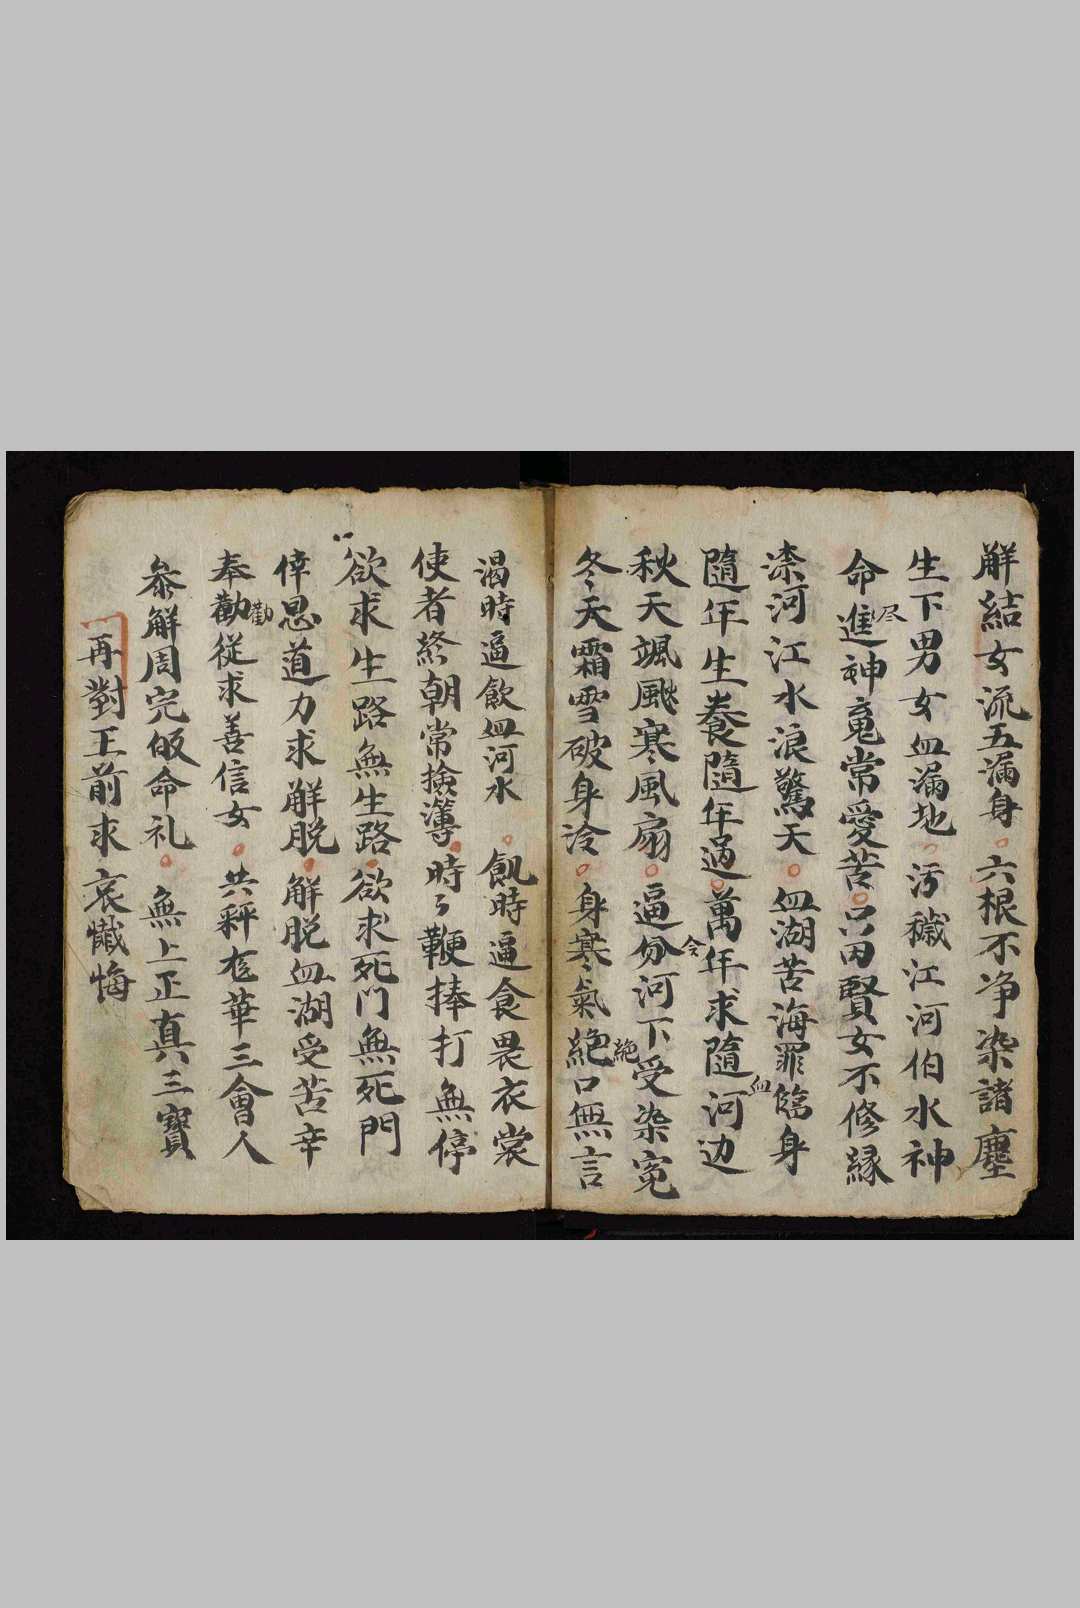 解結女流五漏身。六根不净染諸塵
生下男女血漏地。污穢江河伯水神
命進尽神竟常愛苦。只因賢女不修緣
柰河江水浪驚天。血湖苦海罪臨身
隨年生養隨年過。萬年求隨血河边
秋天颯颰寒風扇。逼分今河下受染冤
冬天霜雪破身冷。身寒氣絕絶口無言
渴時逼飲血河水。飢時逼食畏衣裳
使者終朝常撿簿。時々鞭捧打無停
欲求生路無生路。欲求死門無死門
倖恩道力求解脱。解脱血湖受苦辛
奉勸勸從求善信女。共稱龙華三會人
叅解周完皈命礼。無上正真三寳
再對王前求哀懺悔